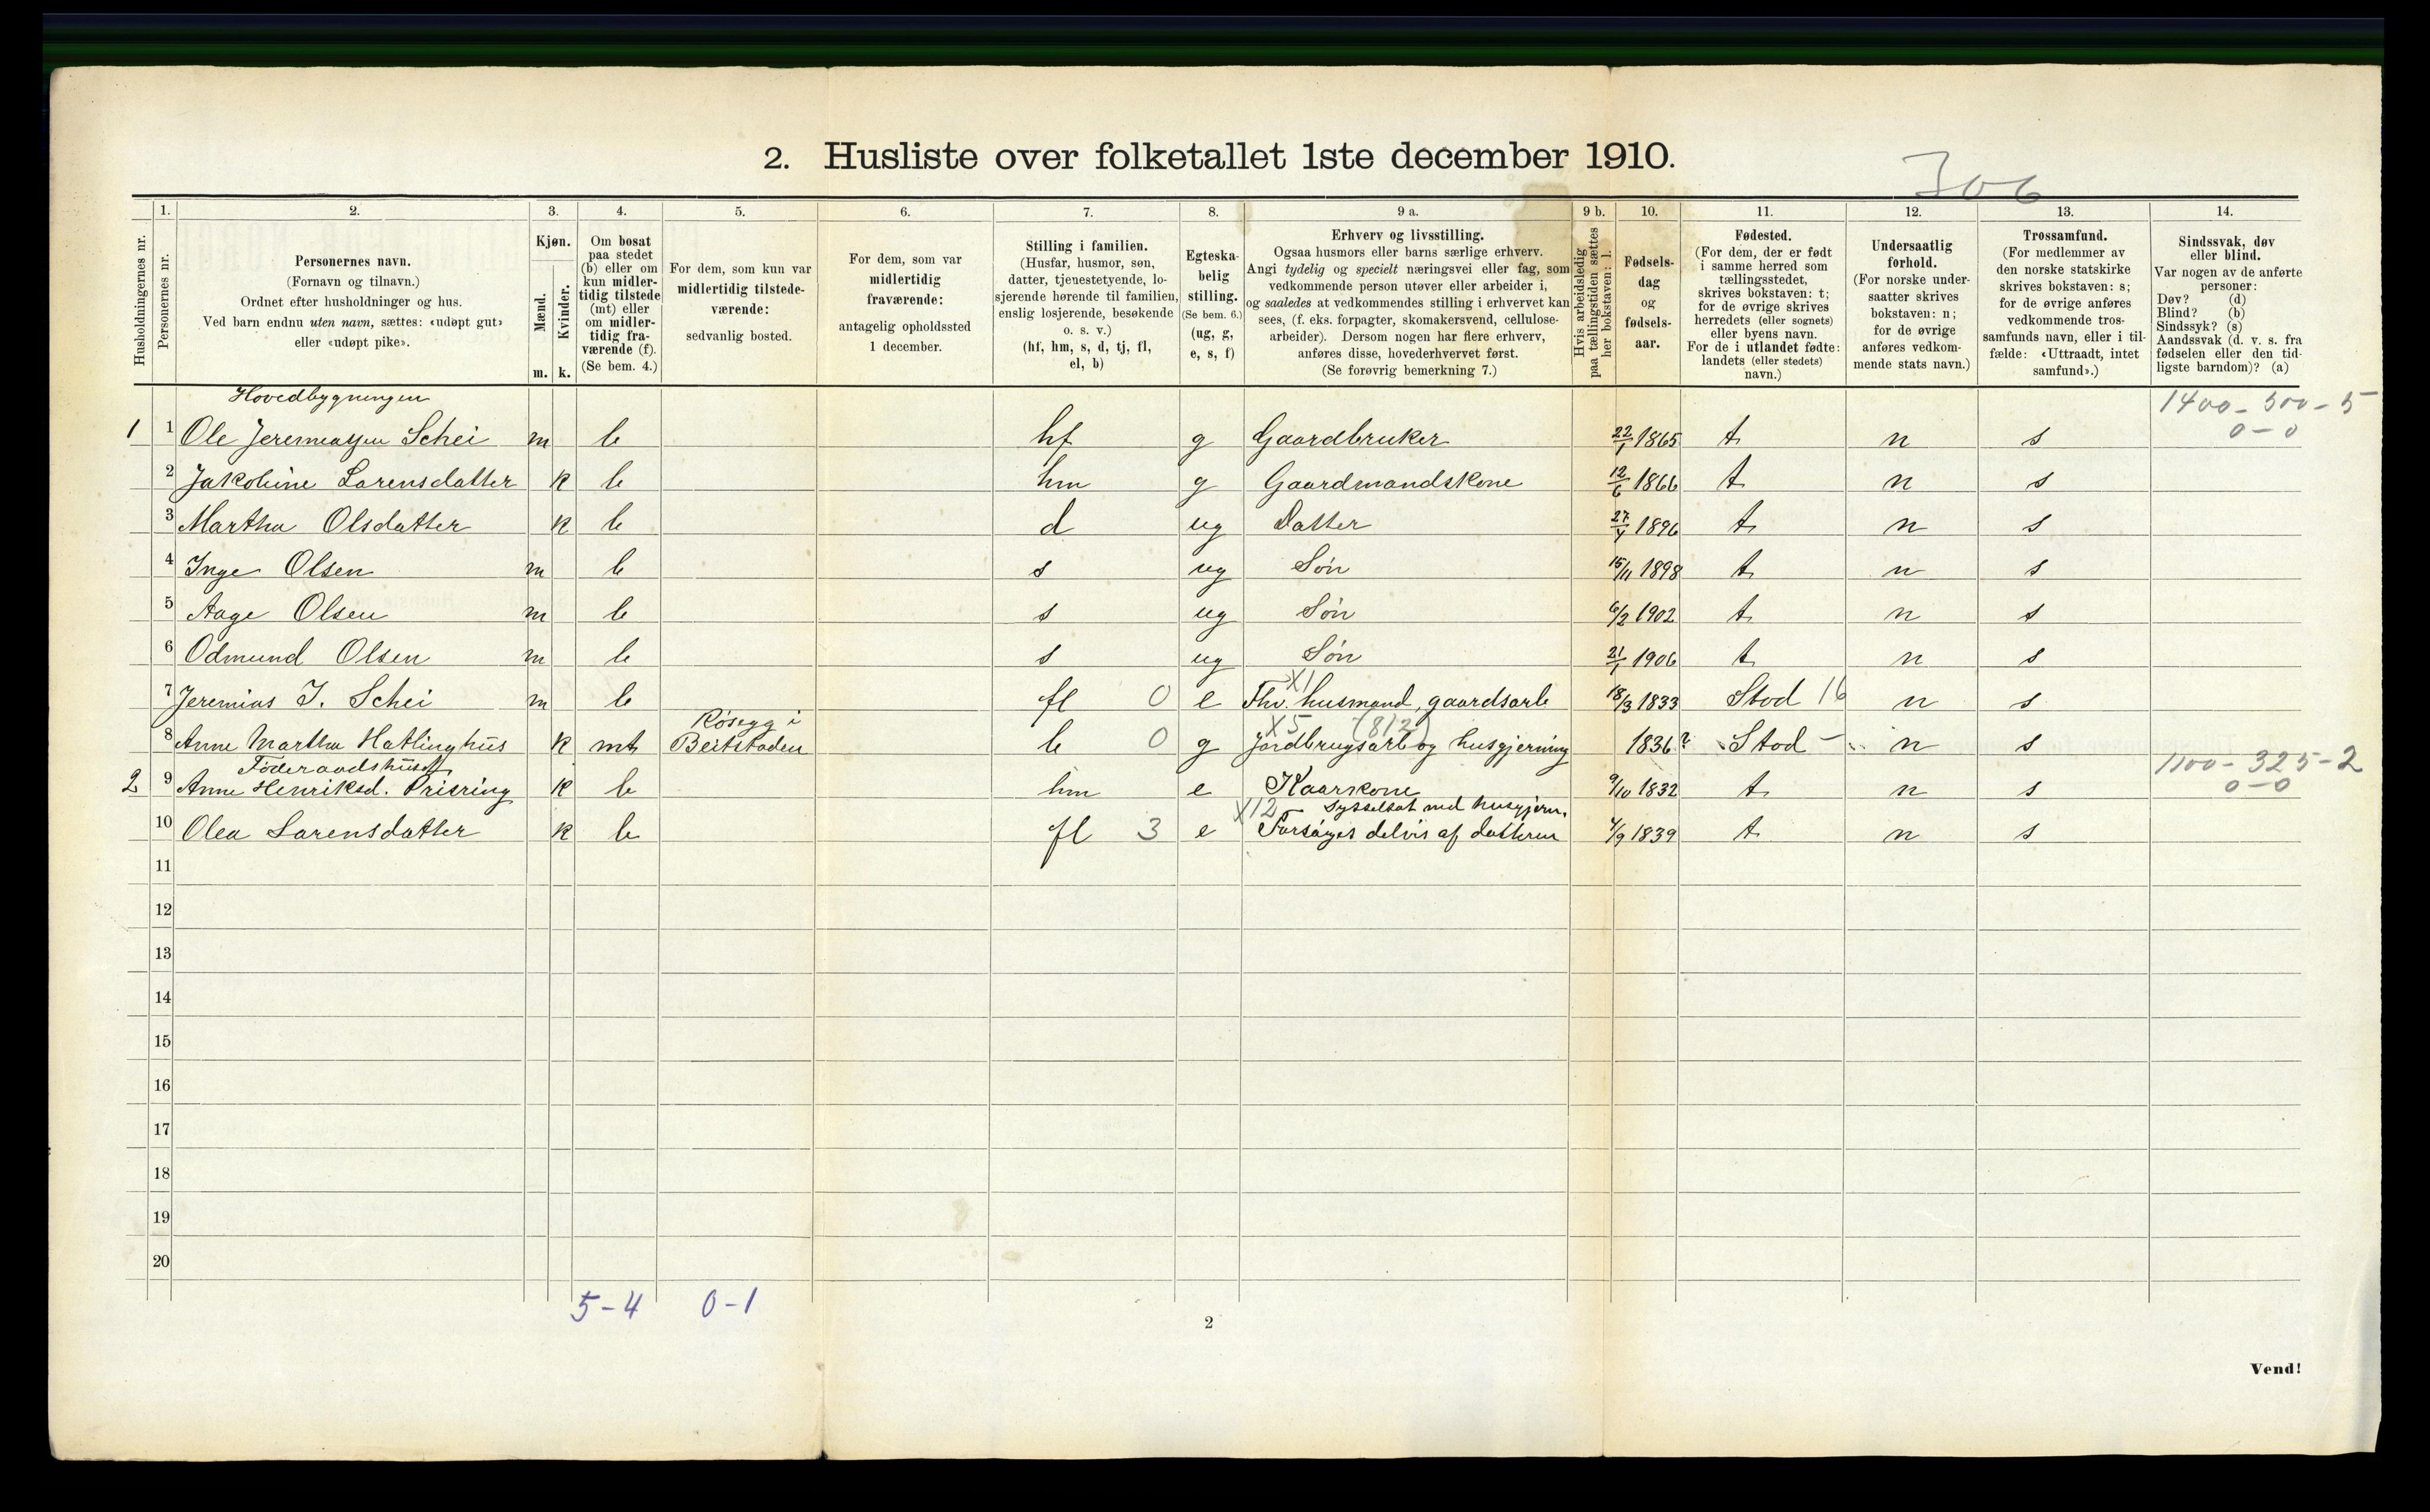 2. Husliste over folketallet 1ste december 1910.
306
Husholdningernes nr.
1.
Personernes nr.
2.
Personernes navn.
(Fornavn og tilnavn.)
Ordnet efter husholdninger og hus.
Ved barn endnu uten navn, sættes: «udøpt gut»
eller «udøpt pike».
3.
Kjøn.
Mænd.
Kvinder.
m. k.
4.
Om bosat
paa stedet
(b) eller om
kun midler-
tidig tilstede
(mt) eller
om midler-
tidig fra-
værende (f).
(Se bem. 4.)
5.
For dem, som kun var
midlertidig tilstede-
værende:
sedvanlig bosted.
6.
For dem, som var
midlertidig
fraværende:
antagelig opholdssted
1 december.
7.
Stilling i familien.
(Husfar, husmor, søn,
datter, tjenestetyende, lo-
sjerende hørende til familien,
enslig losjerende, besøkende
o. s. v.)
(hf, hm, s, d, tj, fl,
el, b)
8.
Egteska-
belig
stilling.
(Se bem. 6.)
(ug, g,
e, s, f)
9 a.
Erhverv og livsstilling.
Ogsaa husmors eller barns særlige erhverv.
Angi tydelig og specielt næringsvei eller fag, som
vedkommende person utøver eller arbeider i,
og saaledes at vedkommendes stilling i erhvervet kan
sees, (f. eks. forpagter, skomakersvend, cellulose-
arbeider). Dersom nogen har flere erhverv,
anføres disse, hovederhvervet først.
(Se forøvrig bemerkning 7.)
9 b.
Hvis arbeidsledig
paa tællingstiden sættes
her bokstaven: l.
10.
Fødsels-
dag
og
fødsels-
aar.
11.
Fødested.
(For dem, der er født
i samme herred som
tællingsstedet,
skrives bokstaven: t;
for de øvrige skrives
herredets (eller sognets)
eller byens navn.
For de i utlandet fødte:
landets (eller stedets)
navn.)
12.
Undersaatlig
forhold.
(For norske under-
saatter skrives
bokstaven: n;
for de øvrige
anføres vedkom-
mende stats navn.)
13.
Trossamfund.
(For medlemmer av
den norske statskirke
skrives bokstaven: s;
for de øvrige anføres
vedkommende tros-
samfunds navn, eller i til-
fælde: «Uttraadt, intet
samfund».)
14.
Sindssvak, døv
eller blind.
Var nogen av de anførte
personer:
Døv? (d)
Blind? (b)
Sindssyk? (s)
Aandssvak (d. v. s. fra
fødselen eller den tid-
ligste barndom)? (a)
Hovedbygningen 1400 - 500 - 5
1 1 Ole Jeremiassen Schei m b hf g Gaardbruker 22/1 1865 t n s 0 - 0
2 Jakobine Larensdatter k b hm g Gaardmandskone 12/6 1866 t n s
3 Martha Olsdatter k b d ug Datter 27/4 1896 t n s
4 Inge Olsen m b s ug Søn 15/11 1898 t n s
5 Aage Olsen m b s ug Søn 6/2 1902 t n s
6 Odmund Olsen m b s ug Søn 21/1 1906 t n s
X1
7 Jeremias J. Schei m b fl 0 e Fhv. husmand, gaardsarb 18/3 1833 Stod 16 n s
Røsegg i X5 (812)
8 Anne Martha Hatlinghus k mt Beitstaden b 0 g Jordbrugsarb og husgjerning 1836? Stod - n s
Føderaadshuset 1100 - 325 - 2
2 9 Anne Henriksd. Prisring k b hm e Kaarkone 9/10 1832 t n s 0 - 0
X12 sysselsat med husgjern.
10 Olea Larensdatter k b fl 3 e Forsørges delvis af datteren 4/9 1839 t n s
11
12
13
14
15
16
17
18
19
20
5 - 4 0 - 1
2
Vend!